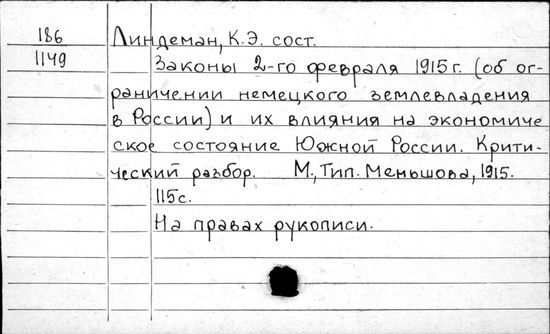 186 Линдеман, К.Э. сост.
1149 Законы 2-го февраля 1915 г. (об ог-
раничении немецкого землевладения
в России) и их влияния на экономиче
ское состояние Южной России. Крити-
ческий разбор. М., Тип. Меньшова, 1915.
115с.
На правах рукописи.